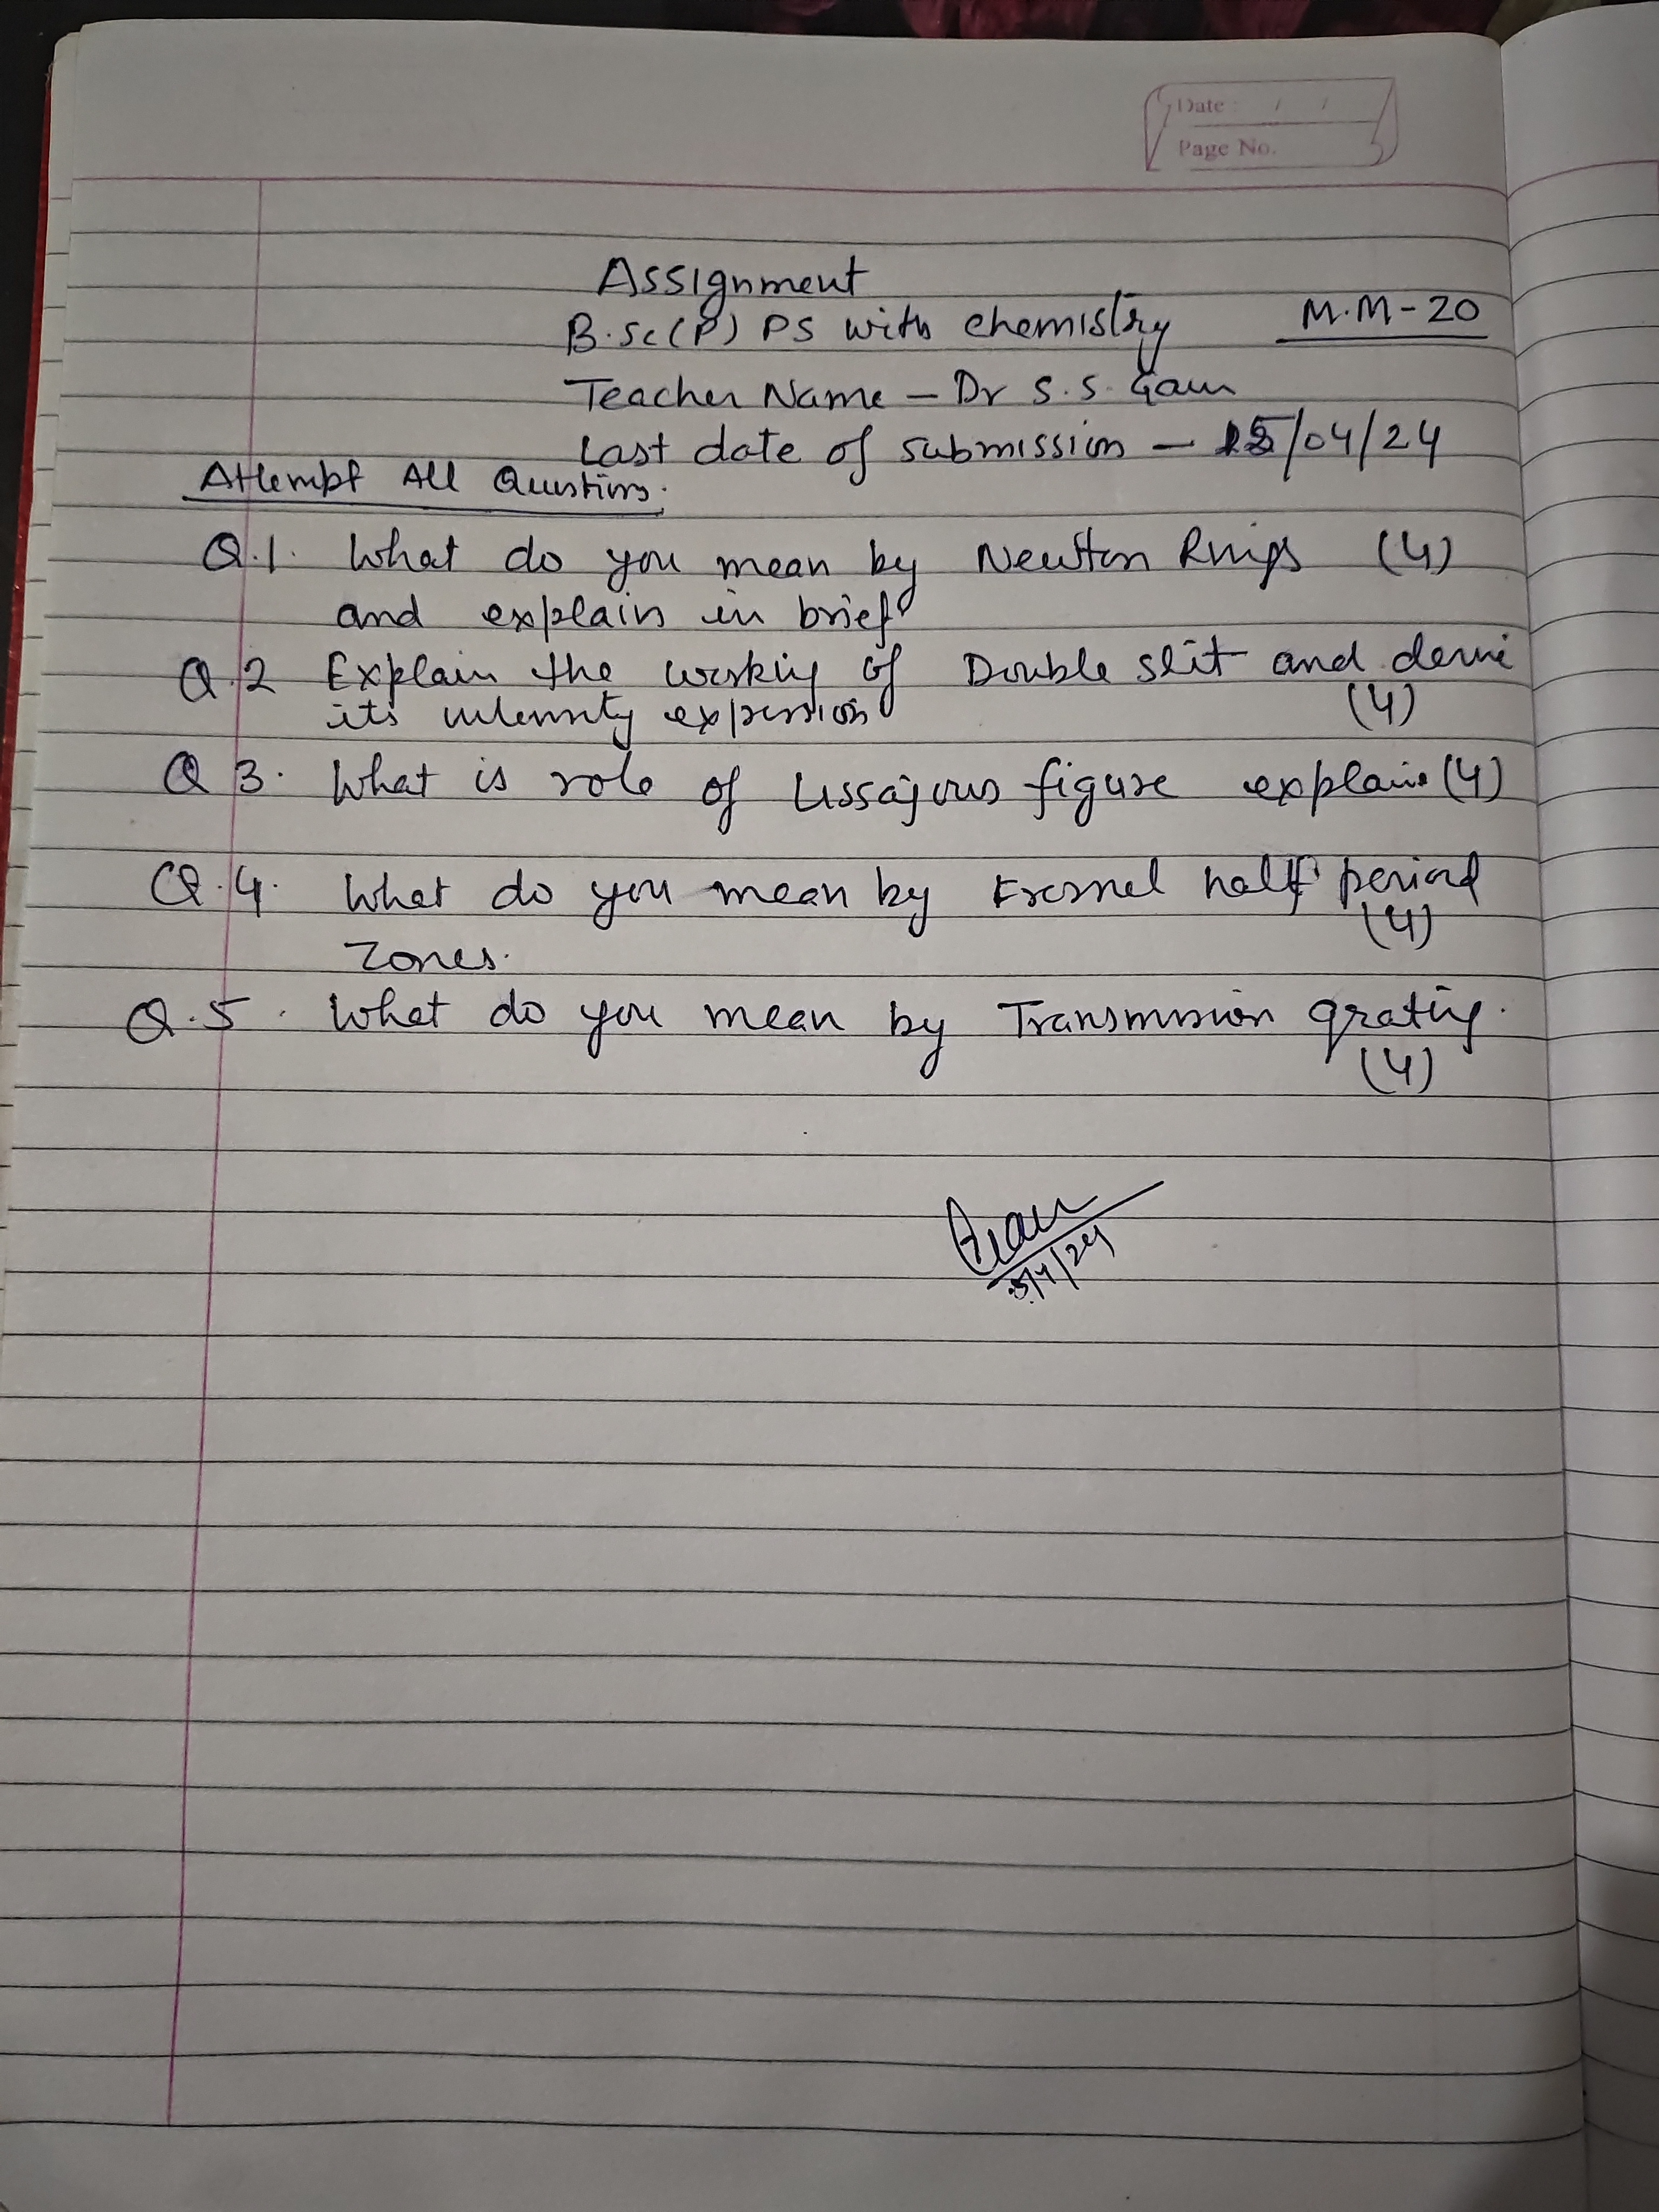 Date : / /
Page No.
Assignment
B.Sc(P) PS with chemistry M.M-20
Teacher Name - Dr S.S. Gaur
Last date of submission - /04/24
Attempt All Questions.
Q.1. What do you mean by Newton Rings (4)
and explain in brief
Q.2 Explain the working of Double slit and derive
its intensity expression (4)
Q 3. What is role of Lissajous figure explain (4)
Q.4. What do you mean by Fresnel half period
(4)
Zones.
Q.5. What do you mean by Transmission grating.
(4)